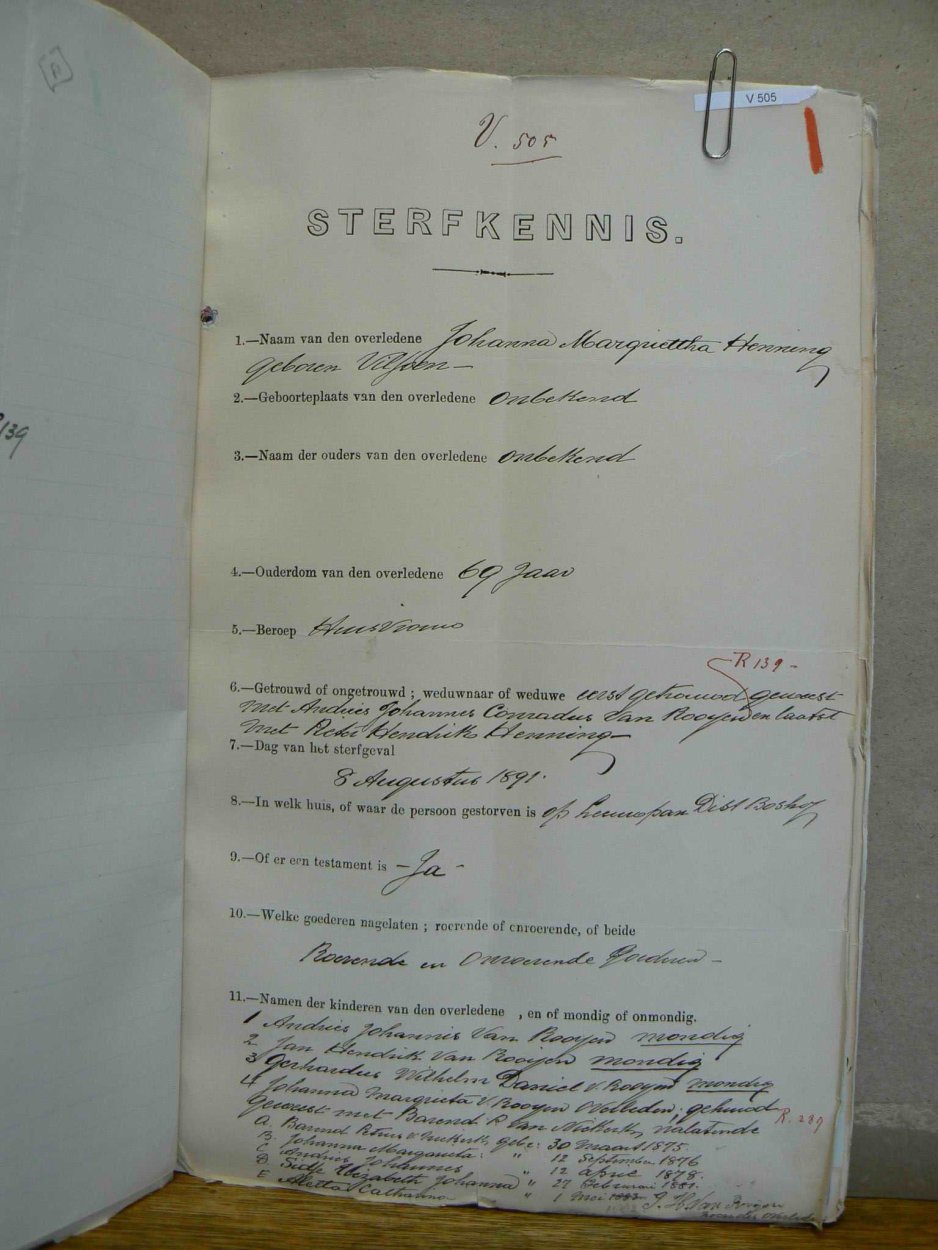 R
V 505
V. 505
STERFKENNIS.
1.—Naam van den overledene Johanna Margrettha Henning
geboren Viljoen —
2.—Geboorteplaats van den overledene onbekend
139
3.—Naam der ouders van den overledene onbekend
4.—Ouderdom van den overledene 69 Jaar
5.—Beroep Huisvrouw
R 139 -
6.—Getrouwd of ongetrouwd ; weduwnaar of weduwe eerst getrouwd geweest
met Andries Johannes Conradus Van Rooyen en laatst
met Petrus Hendrik Henning
7.—Dag van het sterfgeval
8 Augustus 1891.
8.—In welk huis, of waar de persoon gestorven is op Dist Boshof
9.—Of er een testament is - Ja -
10.—Welke goederen nagelaten ; roerende of onroerende, of beide
Roerende en Onroerende Goederen -
11.—Namen der kinderen van den overledene , en of mondig of onmondig.
1 Andries Johannis Van Rooyen mondig
2 Jan Hendrik Van Rooijen mondig
3 Gerhardus Wilhelm Daniel v Rooyen mondig
4 Johanna Margrieta v Rooyen Overleden, gehuwd
Geweest met Barend P Van Niekerk, nalatende R. 289
A. Barend Petrus v Niekerk gebo: 30 Maart 1875
B. Johanna Margareta: " 12 September 1876
C Andries Johannes " 12 April 1878.
D Sidje Elizabeth Johanna " 27 Februari 1881.
E Aletta Catharina " 1 Mei J. H. Van Rooijen